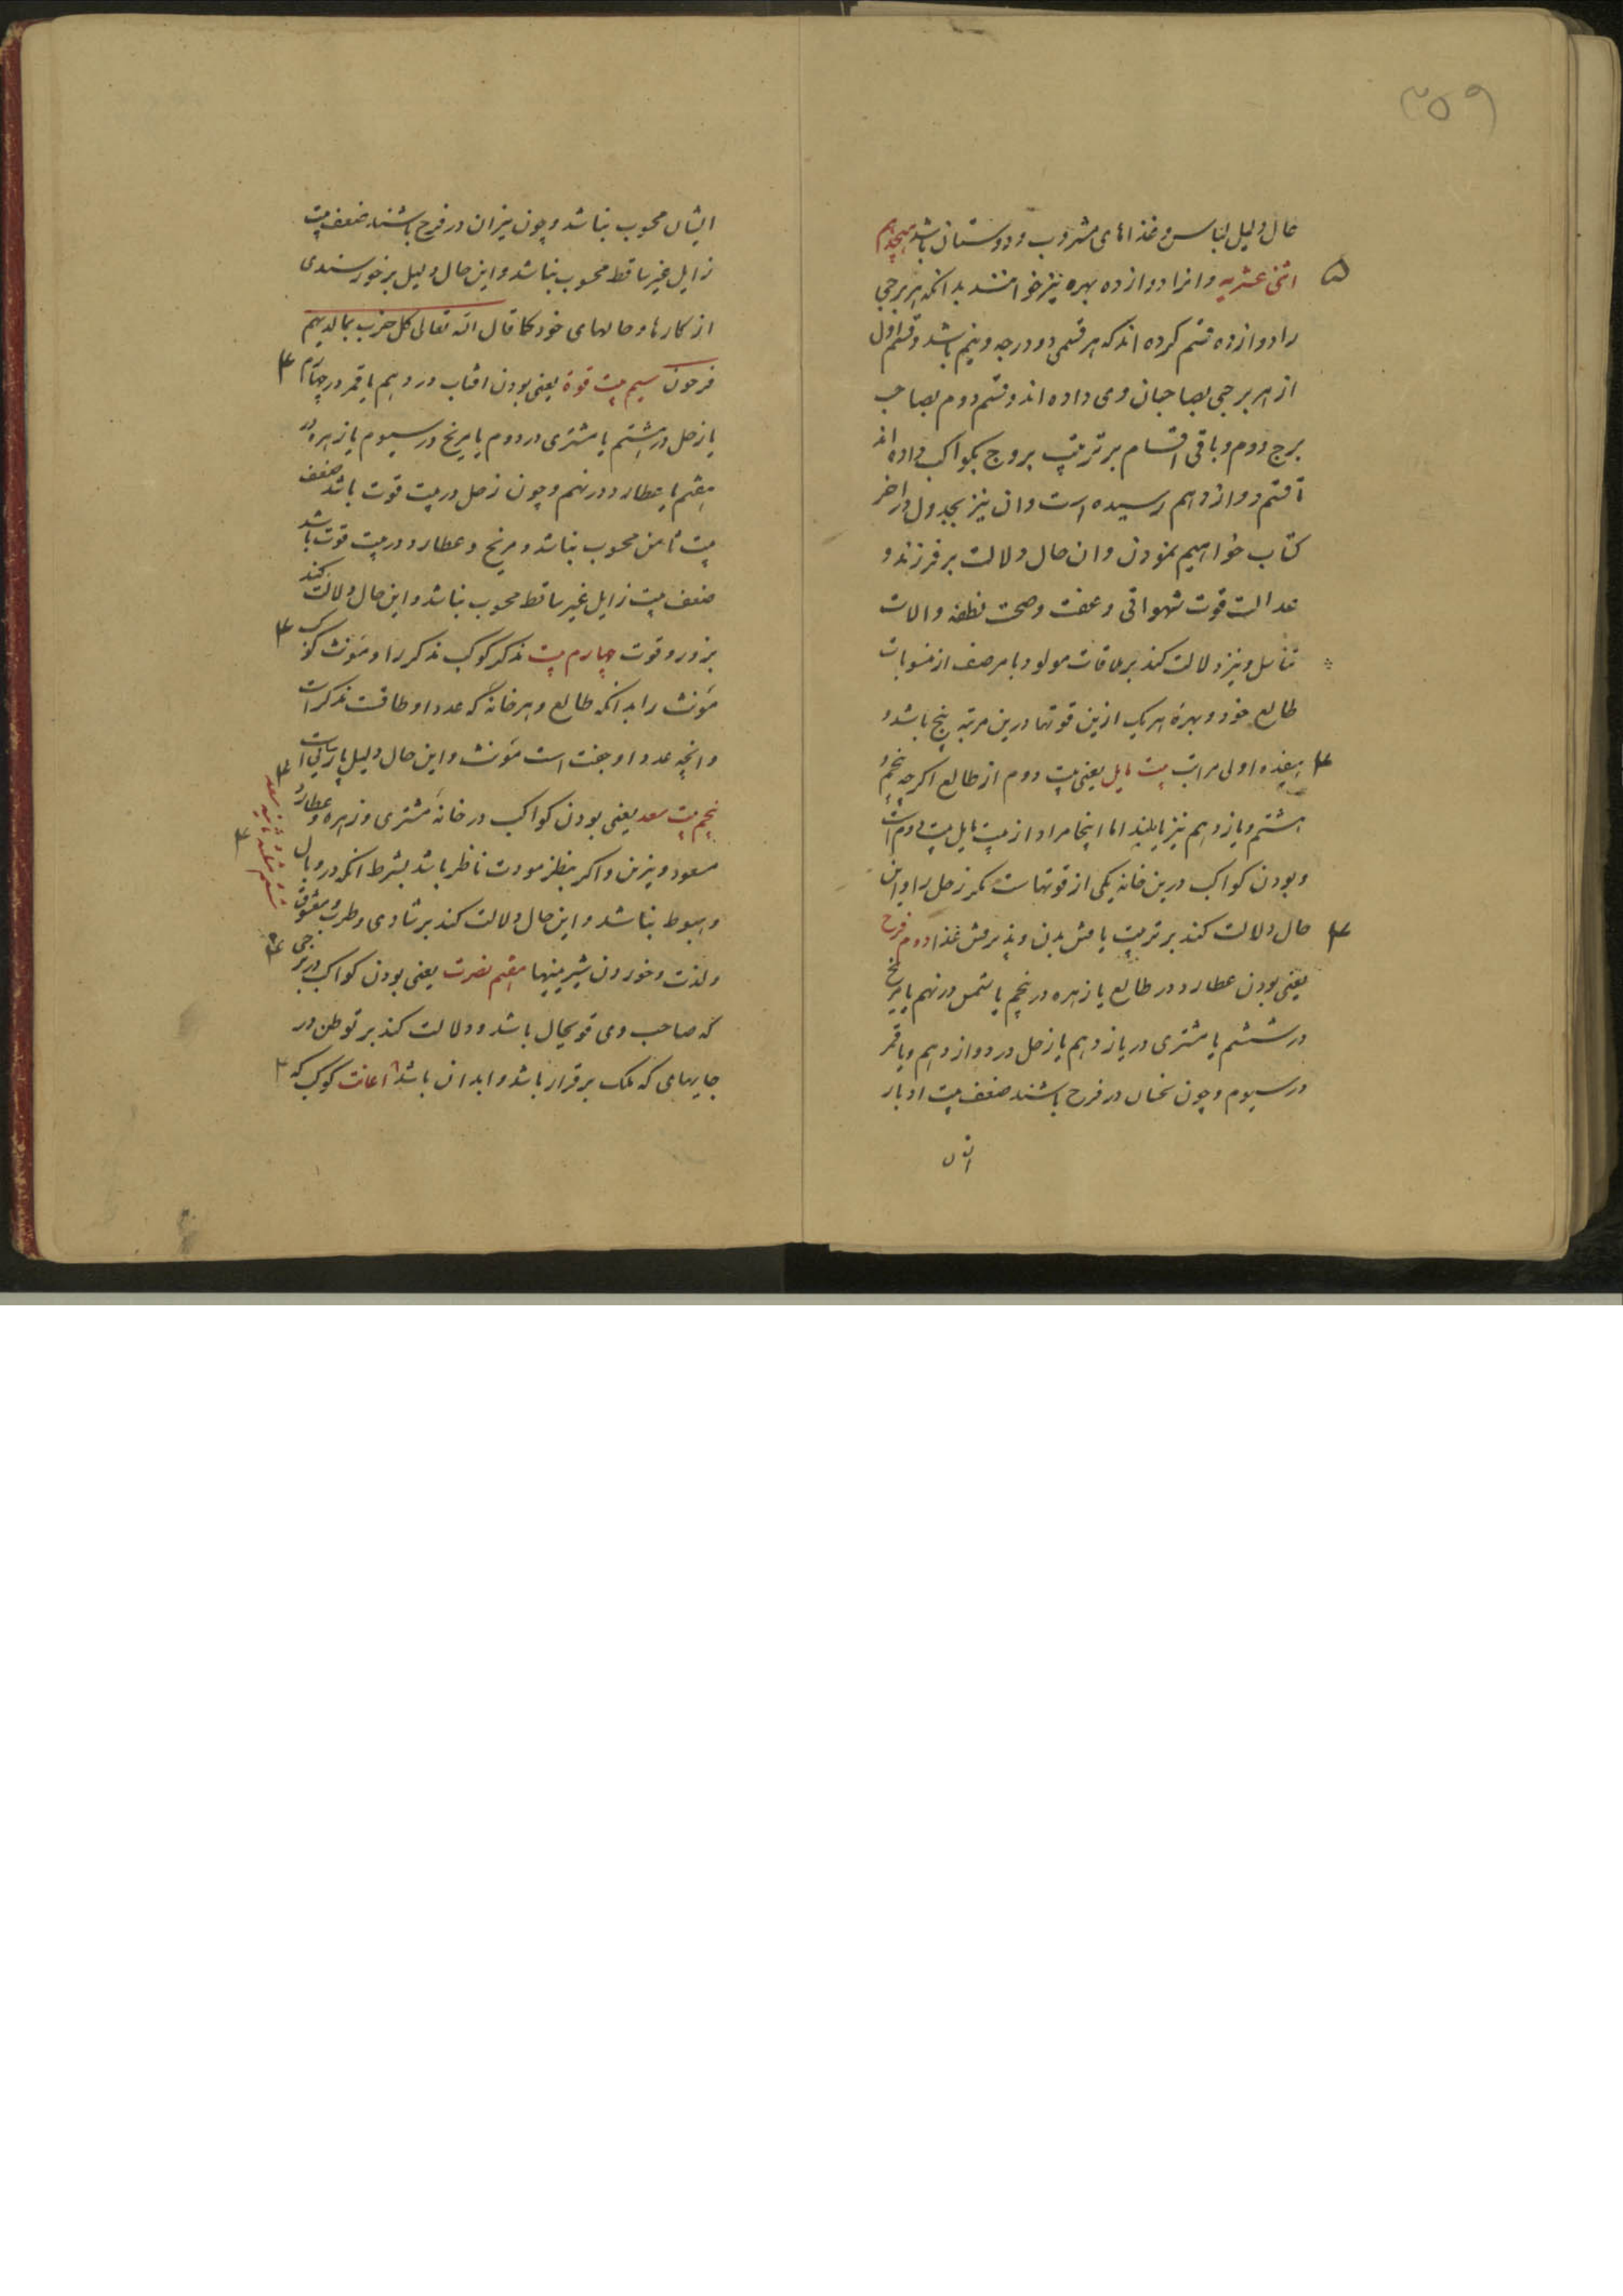 ۳۵۹
حال دلیل لباس و غذاهای مشروب و دوستان باشد هیجدهم
۵ اثنی عشریه و انرا دوازده بهره نیز خوانند بدانکه هر برجی
را دوازده قسم کرده اند که هر قسمی دو درجه و نیم باشد و قسم اول
از هر برجی بصاحبان وی داده اند و قسم دوم بصاحب
برج دوم و باقی اقسام بر ترتیب بروج بکواکب داده اند
تا قسم دوازدهم رسیده است و ان نیز بجدول در اخر
کتاب خواهیم نمودن و ان حال دلالت بر فرزند و
عدالت قوت شهوانی و عفت و صحت نطفه و الات
تناسل و نیز دلالت کند بر ملاقات مولود با هر صنف از منسوبات
طالع خود و بهرهٔ هر یک ازین قوتها درین مرتبه پنج باشد و
۴ اولی مراتب بیت مایل یعنی بیت دوم از طالع اکرچه پنجم و
هشتم و یازدهم نیز مایلند اما اینجا مراد از بیت مایل بیت دوم است
و بودن کواکب درین خانه یکی از قوتهاست مکر زحل را و این
۴ حال دلالت کند بر تربیت یافتن بدن و پذیرفتن غذا دوم فرح
یعنی بودن عطارد در طالع یا زهره در پنجم یا شمس در نهم یا مریخ
در ششم یا مشتری در یازدهم یا زحل در دوازدهم و یا قمر
در سیوم و چون نحسان در فرح باشند ضعف بیت ادبار
ایشان
ایشان محسوب نباشد و چون نیران در فرح باشند ضعف بیت
زایل غیر ساقط محسوب نباشد و این حال دلیل بر خورسندی
از کارها و حالهای خود کما قال الله تعالی کل حزب بما لدیهم
فرحون سیم بیت قوة یعنی بودن افتاب در دهم یا قمر در چهارم ۴
یا زحل در هشتم یا مشتری در دوم یا مریخ در سیوم یا زهره در
هفتم یا عطارد در نهم و چون زحل در بیت قوت باشد ضعف
بیت ثامن محسوب نباشد و مریخ و عطارد در بیت قوت باشد
ضعف بیت زایل غیر ساقط محسوب نباشد و این حال دلالت کند
بر زور و قوت چهارم بیت مذکر کوکب مذکر را و مؤنث کوکب ۴
مؤنث را بدانکه طالع و هر خانهٔ که عدد او طاقست مذکر است
و انچه عدد او جفت است مؤنث و این حال دلیل است ۴
پنجم بیت سعد یعنی بودن کواکب در خانهٔ مشتری و زهره و عطارد
مسعود و نیرین و اکر بنظر مودت ناظر باشد بشرط انکه در وبال ۴
و هبوط نباشد و این حال دلالت کند بر شادی و طرب و معشوق
و لذت و خوردن شیرینیها هفتم نصرت یعنی بودن کواکب در برجی ۴
که صاحب وی قویحال باشد و دلالت کند بر توطن در
جایهای که ملک برقرار باشد و ابدان باشد ۸ اعانت کوکب که ۴